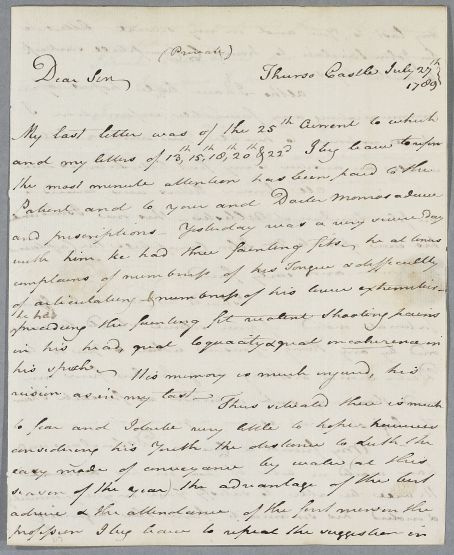 (Private)
Dear Sir,
Thurso Castle July 27th
1789
My last letter was of the 25th Current to which
and my letters of 13th, 15th, 18th, 20th & 22d I beg leave to refer
the most minute attention has been paid to the
Patient, and to your and Doctor Monros advice
and prescriptions Yesterday was a very severe day
with him he had three fainting fits, he at times
complains of numbness of his Tongue & difficulty
of articulating & numbness of his lower extremities
he has
preceeding the fainting fit violent shooting pains
in his head, great loquacity & great incoherence in
his speech. His memory is much injured, his
vision as in my last
Thus situated there is much
to fear and I doubt very little to hope however
considering his Youth the distance to Leith the
easy mode of conveyance by water at this
season of the year, the advantage of the best
advice & the attendance of the first men in the
profession I beg leave to repeat the suggestion in